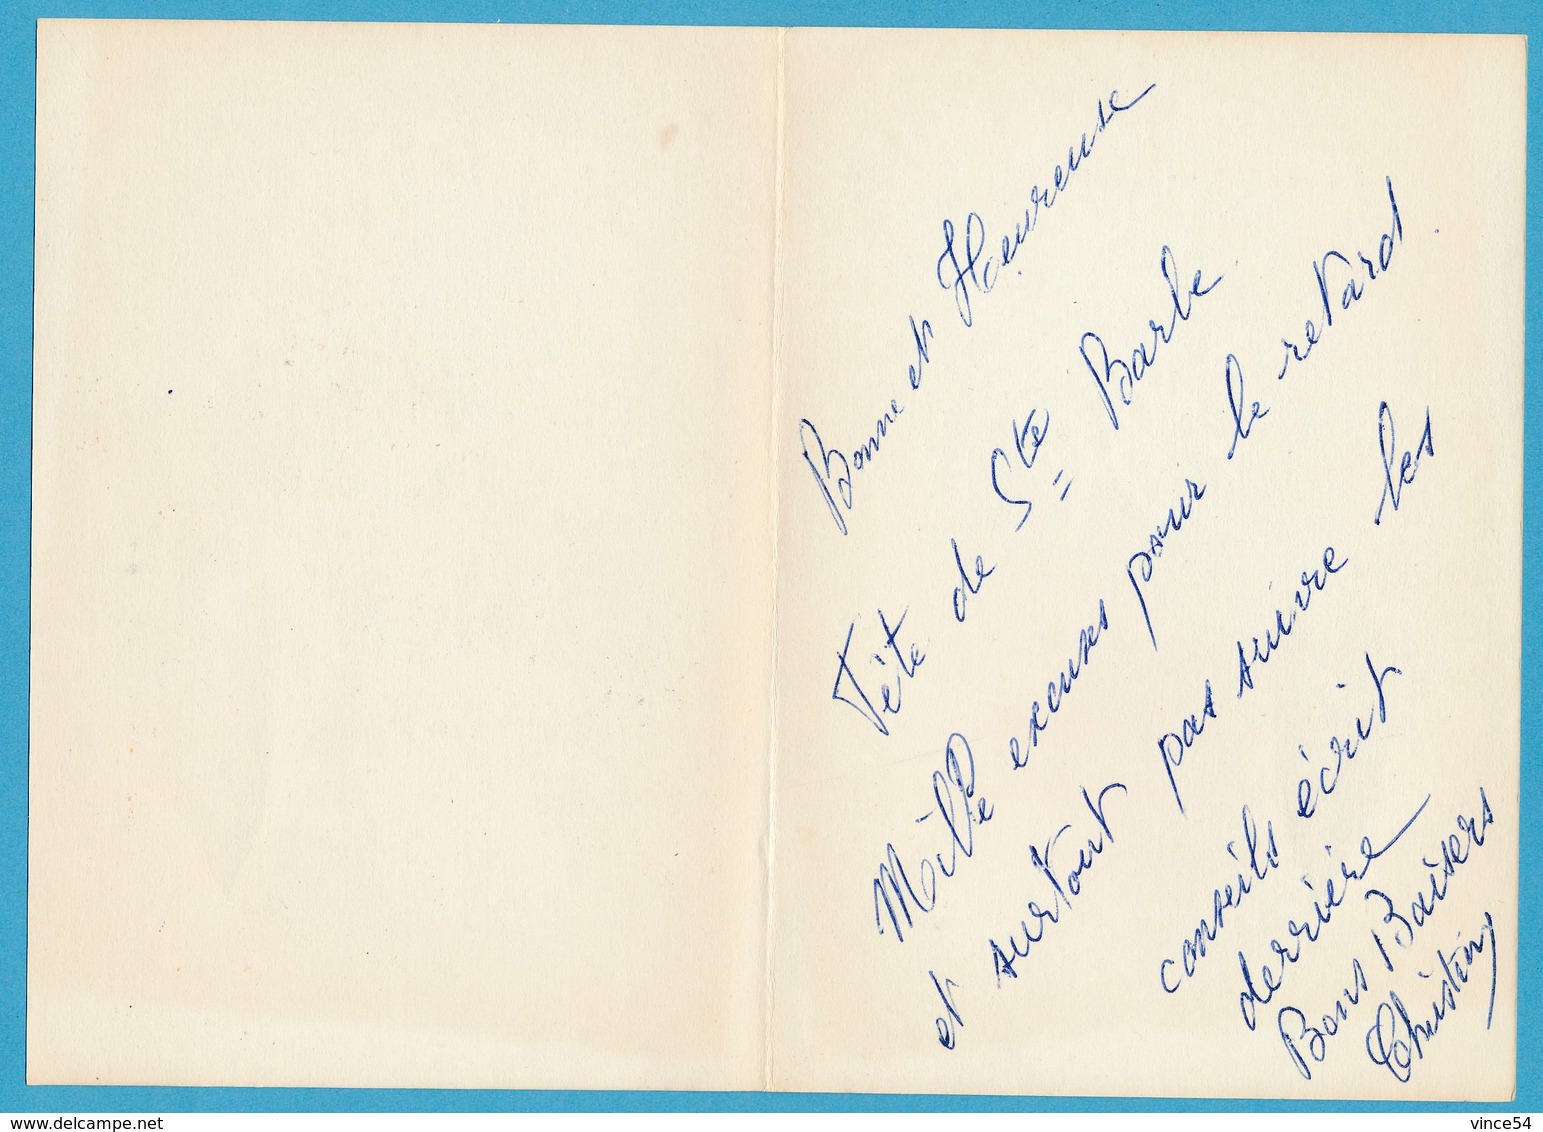 Bonne et Heureuse
Fête de Ste Barbe.
Mille excuses pour le retard.
et surtout pas suivre les
conseils écrit
derrière
Bons Baisers
delcampe.net
vince54